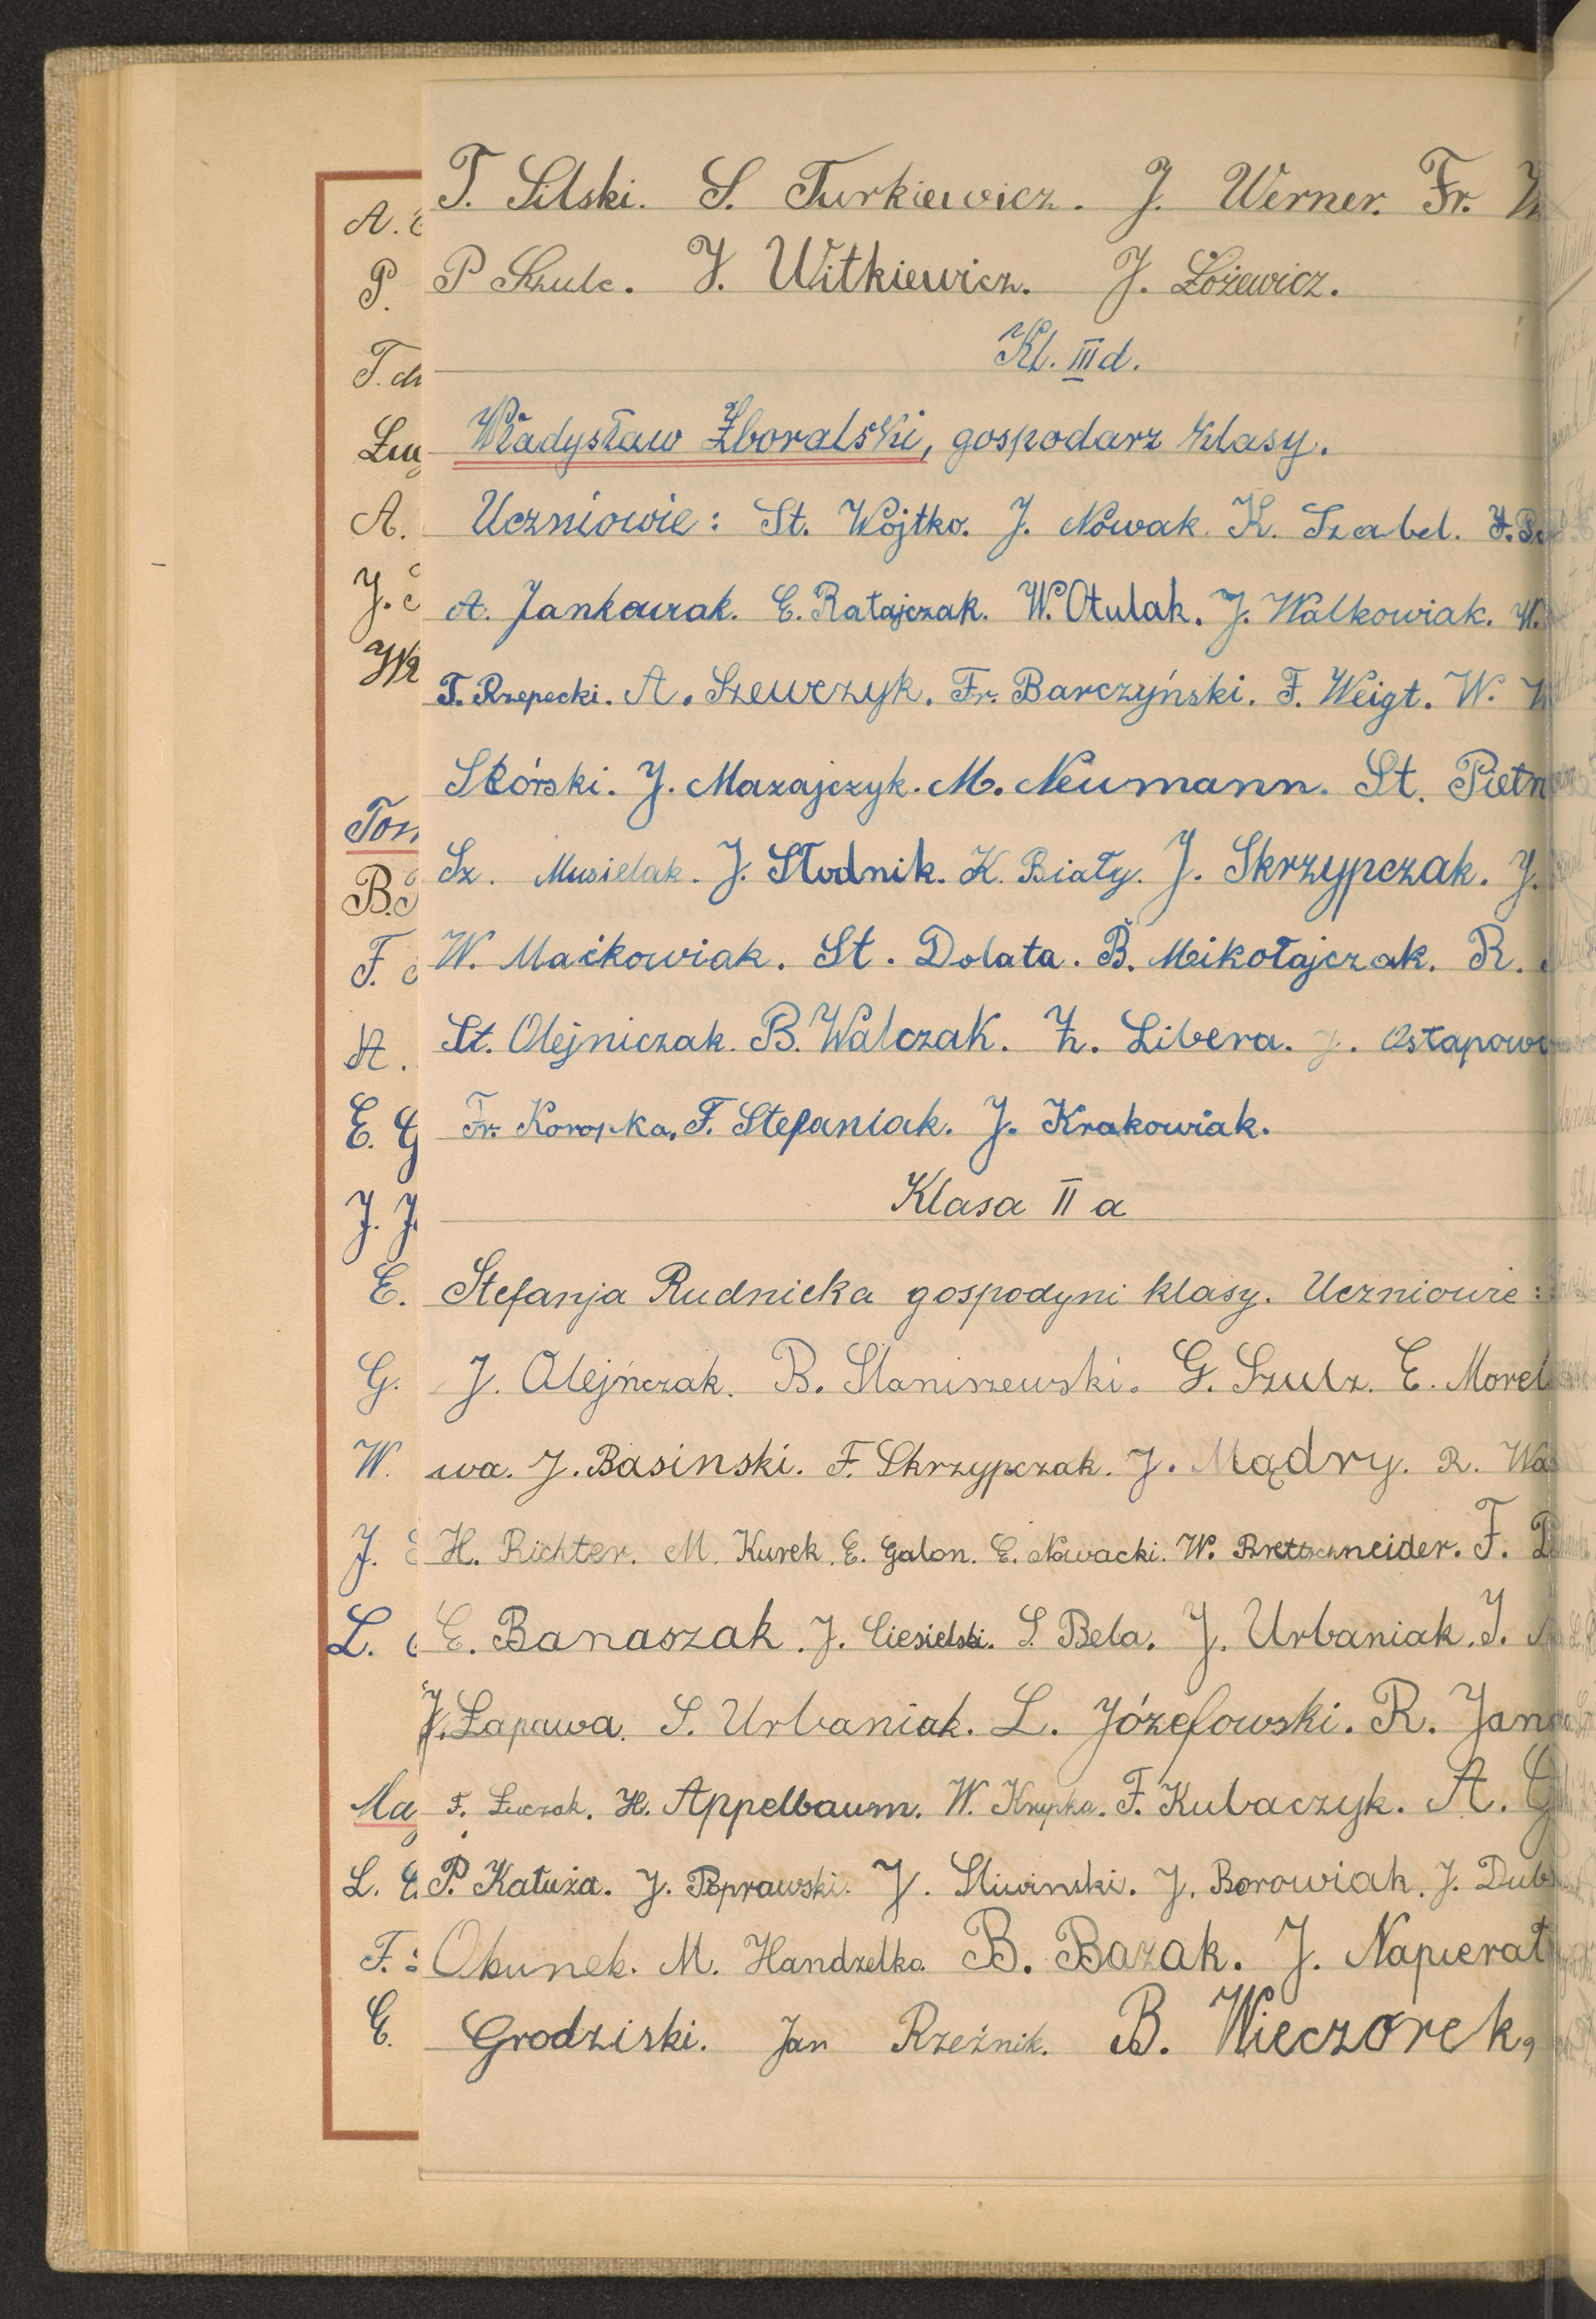 T. Silski. S. Turkiewicz. J. Werner. Fr.
P Szulc. J. Witkiewicz. J. Łożewicz.
Kl. III d.
Władysław Zboralski, gospodarz klasy.
Uczniowie: St. Wójtko. J. Nowak. K. Szabel.
A. Jankowiak. E. Ratajczak. W. Otulak. J. Walkowiak. W.
T. Rzepecki. A. Szewczyk. Fr. Barczyński. F. Weigt. W.
Skórski. J. Mazajczyk. M. Neumann. St. Pietr
Sz. Musielak. J. Słodnik. K. Biały. J. Skrzypczak. J.
W. Maćkowiak. St. Dolata. B. Mikołajczak. R.
St. Olejniczak. B. Walczak. Z. Libera. J. Ostapow
Fr. Koropka. F. Stefaniak. J. Krakowiak.
Klasa II a
Stefanja Rudnicka gospodyni klasy. Uczniowie:
J. Olejńczak. B. Staniszewski. G. Szulz. E. Morel
wa. J. Basinski. F. Skrzypczak. J. Mądry. R. Wa
H. Richter. M. Kurek. E. Galon. E. Nowacki. W. Brettschneider. F.
E. Banaszak. J. Ciesielski. S. Bela. J. Urbaniak. J.
J. Łapawa. S. Urbaniak. L. Józefowski. R. Jan
F. Łuczak. H. Appelbaum. W. Krupka. F. Kubaczyk. A. G
P. Kałuża. J. Poprawski. J. Sliwinski. J. Borowiak. J. Dub
Okunek. M. Handzelka. B. Bazak. J. Napierał
Grodziski. Jan Rzeźnik. B. Wieczorek,
A.
P.
T.
A.
J.
B.
F.
A.
E. G
J. J.
E.
G.
W.
J.
L.
Ma
L.
F.
E.